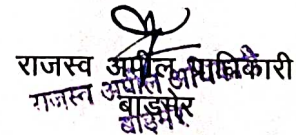 राजस्व अपील प्राधिकारी
राजस्व अपील अधिकारी
बाड़मेर
बाड़मेर